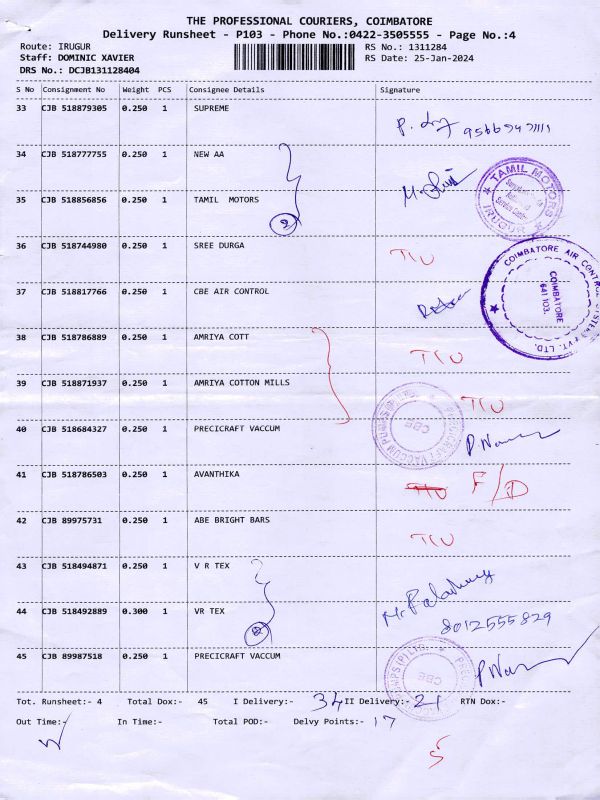 THE PROFESSIONAL COURIERS, COIMBATORE
Delivery Runsheet - P103 - Phone No.:0422-3505555 - Page No.:4
Route: IRUGUR RS No.: 1311284
Staff: DOMINIC XAVIER RS Date: 25-Jan-2024
DRS No.: DCJB131128404
S No Consignment No Weight PCS Consignee Details Signature
33 CJB 518879305 0.250 1 SUPREME
34 CJB 518777755 0.250 1 NEW AA
35 CJB 518856856 0.250 1 TAMIL MOTORS 2
TAMIL MOTORS
IRUGUR
36 CJB 518744980 0.250 1 SREE DURGA
37 CJB 518817766 0.250 1 CBE AIR CONTROL
COIMBATORE AIR CONTROL SYSTEMS PVT. LTD.
COIMBATORE
641 103.
38 CJB 518786889 0.250 1 AMRIYA COTT
39 CJB 518871937 0.250 1 AMRIYA COTTON MILLS
40 CJB 518684327 0.250 1 PRECICRAFT VACCUM
CBE
41 CJB 518786503 0.250 1 AVANTHIKA F/D
42 CJB 89975731 0.250 1 ABE BRIGHT BARS
43 CJB 518494871 0.250 1 V R TEX
44 CJB 518492889 0.300 1 VR TEX 2 8012555829
45 CJB 89987518 0.250 1 PRECICRAFT VACCUM
CBE
Tot. Runsheet:- 4 Total Dox:- 45 I Delivery:- 34 II Delivery:- 21 RTN Dox:-
Out Time:- In Time:- Total POD:- Delvy Points:- 17
5